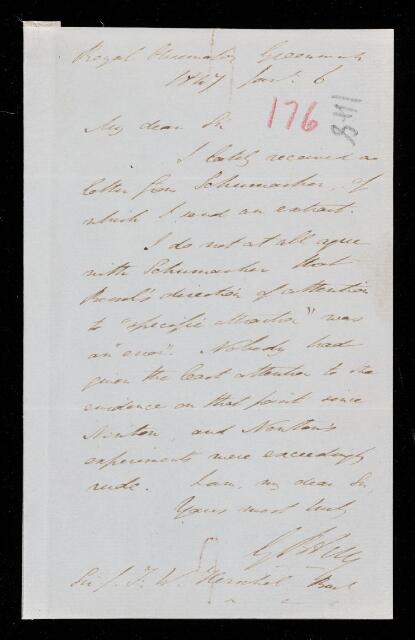 Royal Observatory Greenwich
1847 Jan. 6
176
841
My dear Sir
I lately received a
letter from Schumacher, of
which I send an extract.
I do not at all agree
with Schumacher that
Bessel's direction of attention
to "specific attraction" was
an "error". Nobody had
given the least attention to the
evidence on that point since
Newton, and Newton's
experiments were exceedingly
rude. I am, my dear Sir,
Yours most truly
G B Airy
Sir J. F. W. Herschel Bart